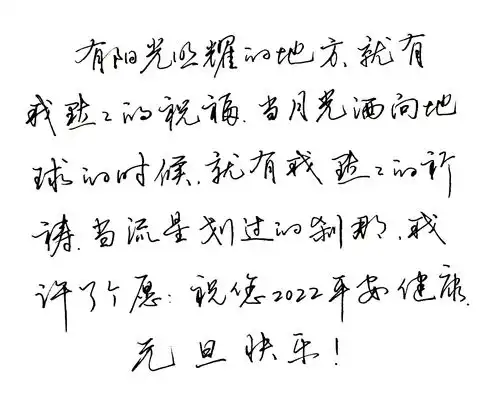 有阳光照耀的地方、就有
我默々的祝福.当月光洒向地
球的时候,就有我默々的祈
祷.当流星划过的刹那,我
许了个愿:祝您2022平安健康.
元旦快乐!